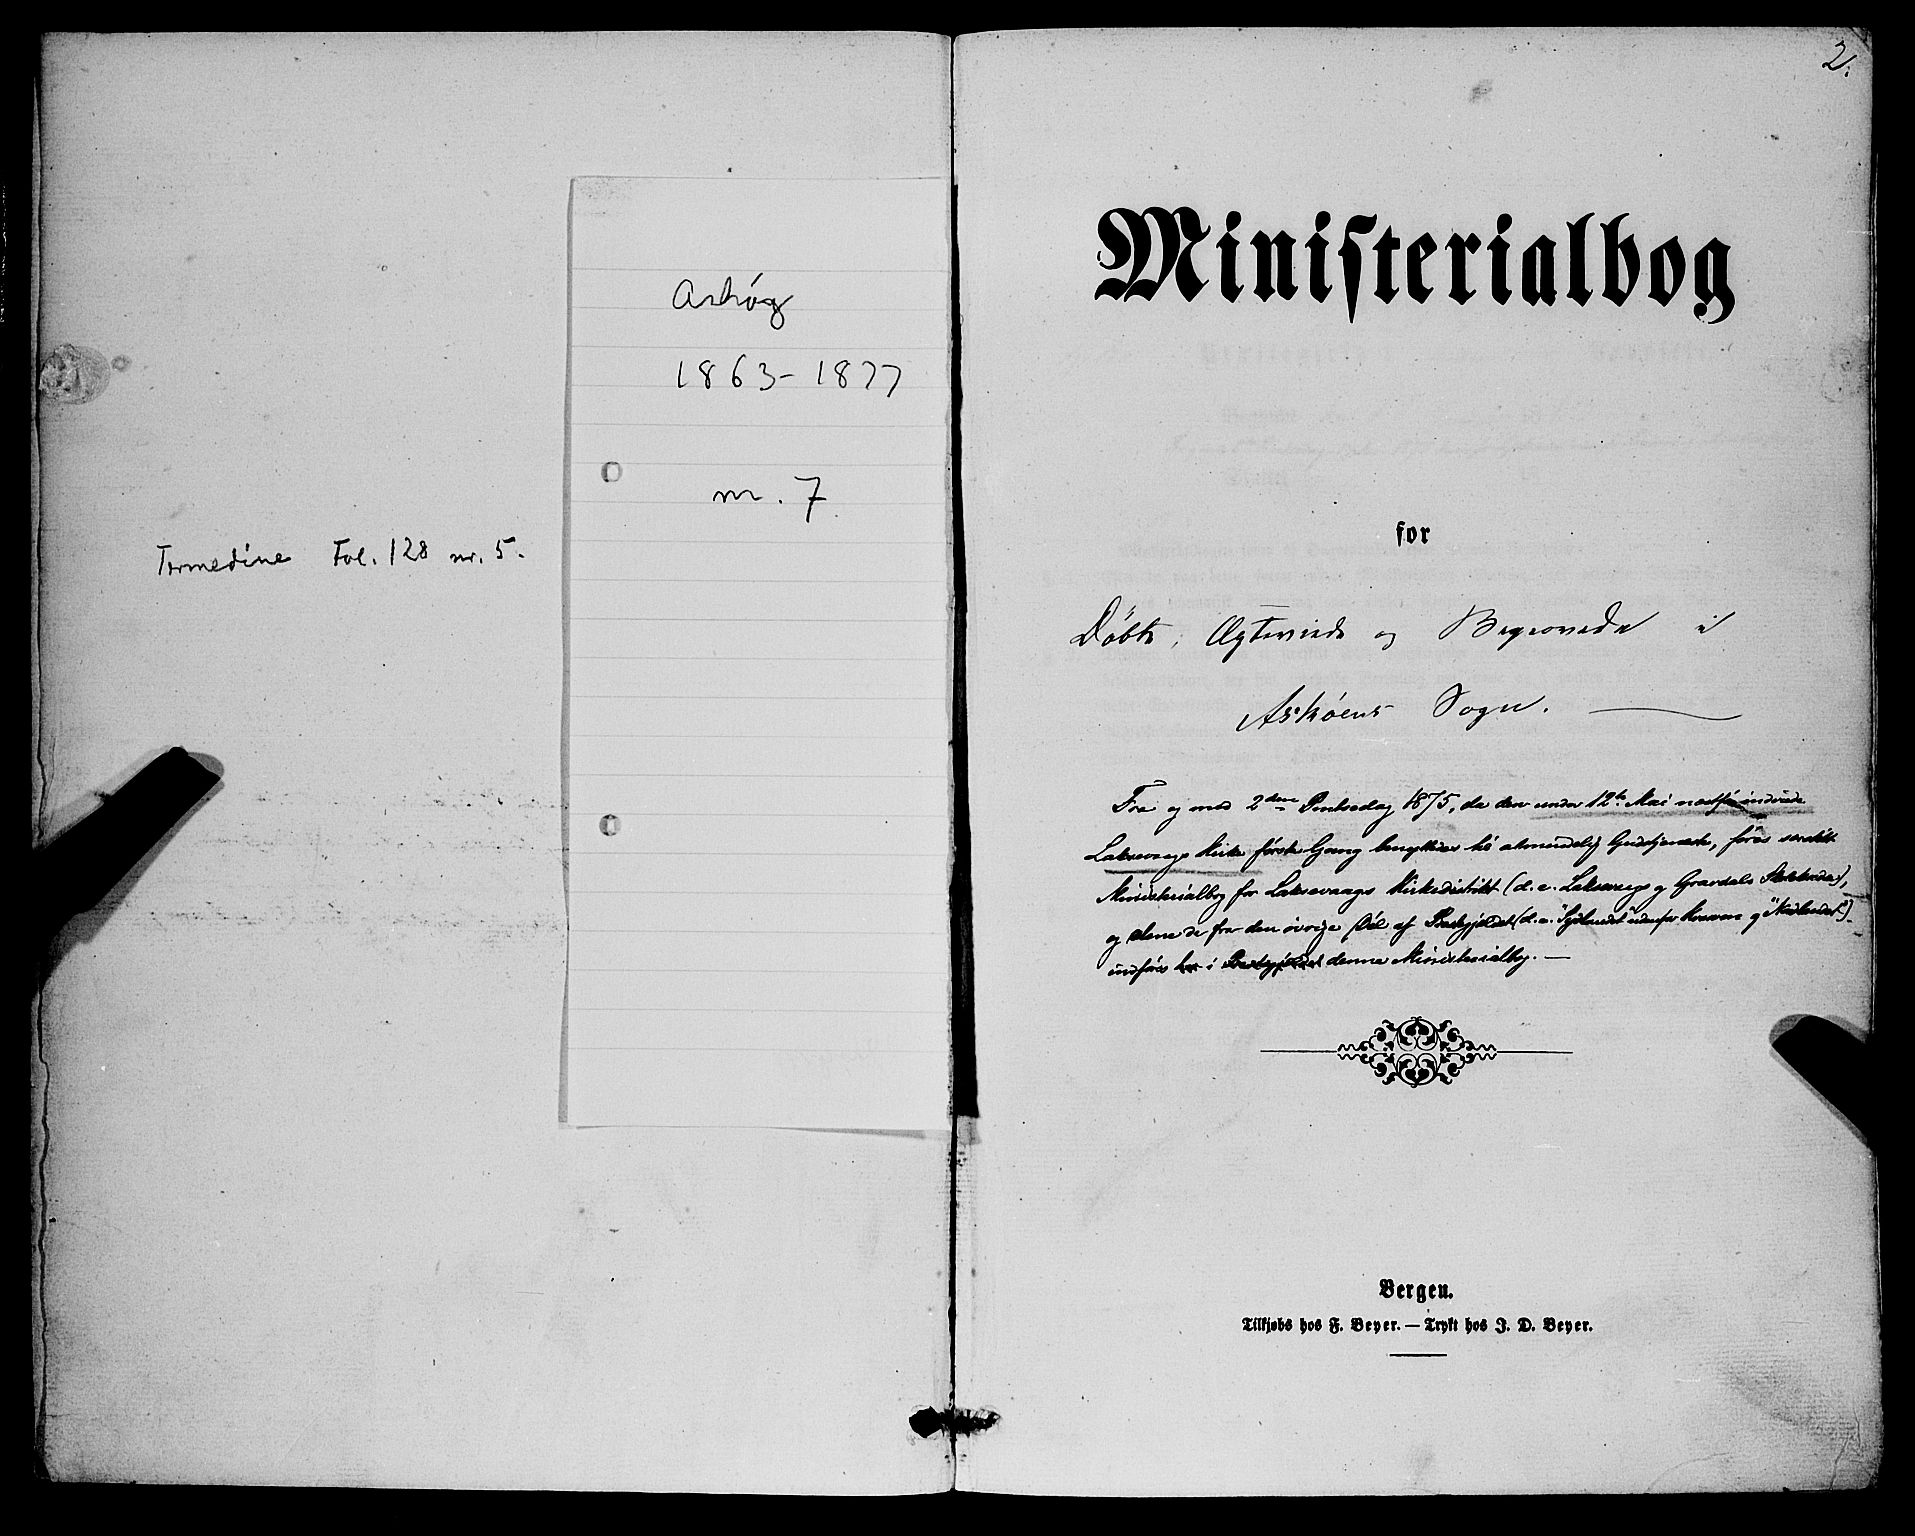 Askøy
1863-1877
nr. 7
Tormedine Fol. 128 nr. 5.
2.
Ministerialbog
for
Døbte, Ægteviede og Begravede i
Askøens Sogn.
Fra og med 2den Pintsedag 1875, da den under 12te Mai næstfør indviede
Laksevaags Kirke første Gang benyttedes til almindelig Gudstjeneste, føres særskilt
Ministerialbog for Laksevaags Kirkedistrikt (d. e. Laksevaags og Gravdals Skolekredse),
og alene de fra den øvrige Del af Præstegjældet (d. e. "Sydlandet" udenfor og "Nordlandet")
indføres her i Præstegjældet denne Ministerialbog. —
Bergen.
Tilkjøbs hos F. Beyer. — Trykt hos J. D. Beyer.